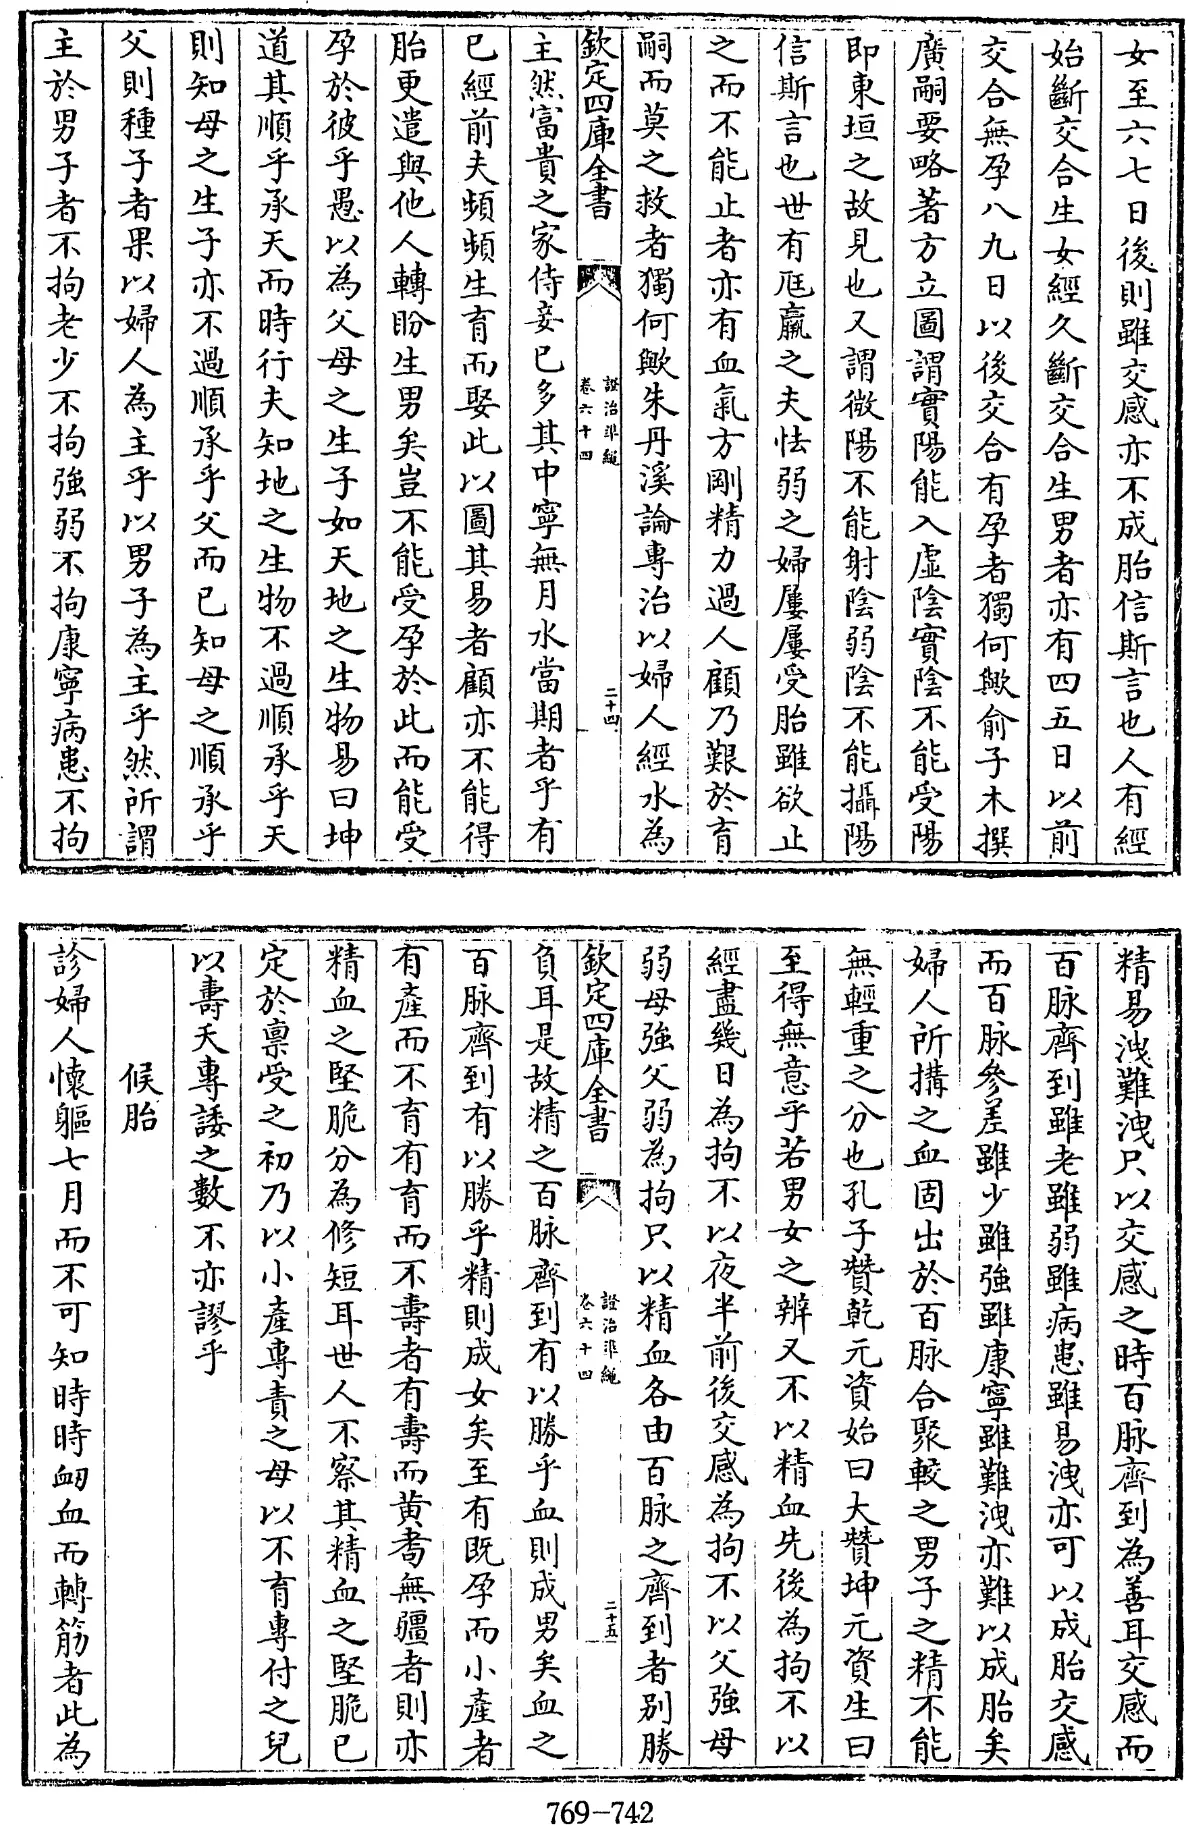 女至六七日後則雖交感亦不成胎信斯言也人有經
始斷交合生女經久斷交合生男者亦有四五日以前
交合無孕八九日以後交合有孕者獨何歟俞子木撰
廣嗣要略著方立圖謂實陽能入虛陰實陰不能受陽
即東垣之故見也又謂微陽不能射陰弱陰不能攝陽
信斯言也世有尫羸之夫怯弱之婦屢屢受胎雖欲止
之而不能止者亦有血氣方剛精力過人顧乃艱於育
嗣而莫之救者獨何歟朱丹溪論專治以婦人經水為
欽定四庫全書
證治準繩
卷六十四
二十四
主然富貴之家侍妾已多其中寧無月水當期者乎有
已經前夫頻頻生育而娶此以圖其易者顧亦不能得
胎更遣與他人轉盼生男矣豈不能受孕於此而能受
孕於彼乎愚以為父母之生子如天地之生物易曰坤
道其順乎承天而時行夫知地之生物不過順承乎天
則知母之生子亦不過順承乎父而已知母之順承乎
父則種子者果以婦人為主乎以男子為主乎然所謂
主於男子者不拘老少不拘強弱不拘康寧病患不拘
精易洩難洩只以交感之時百脉齊到為善耳交感而
百脉齊到雖老雖弱雖病患雖易洩亦可以成胎交感
而百脉參差雖少雖強雖康寧雖難洩亦難以成胎矣
婦人所搆之血固出於百脉合聚較之男子之精不能
無輕重之分也孔子贊乾元資始曰大贊坤元資生曰
至得無意乎若男女之辨又不以精血先後為拘不以
經盡幾日為拘不以夜半前後交感為拘不以父強母
弱母強父弱為拘只以精血各由百脉之齊到者別勝
欽定四庫全書
證治準繩
卷六十四
二十五
負耳是故精之百脉齊到有以勝乎血則成男矣血之
百脉齊到有以勝乎精則成女矣至有既孕而小產者
有產而不育有育而不壽者有壽而黃耇無疆者則亦
精血之堅脆分為修短耳世人不察其精血之堅脆已
定於禀受之初乃以小產專責之母以不育專付之兒
以壽夭專諉之數不亦謬乎
候胎
診婦人懷軀七月而不可知時時衂血而轉筋者此為
769-742